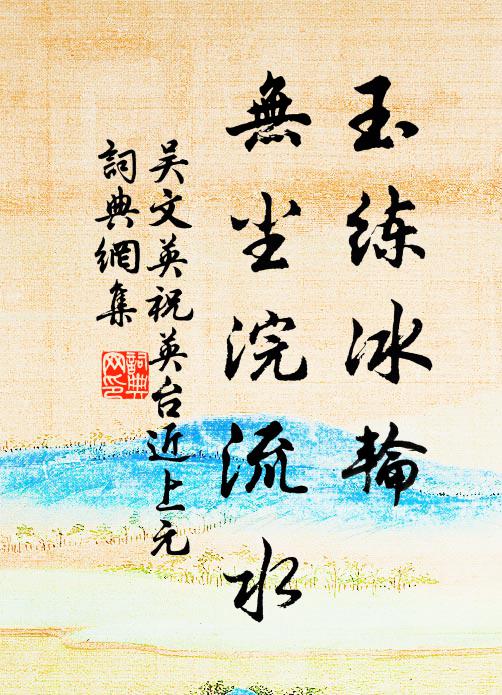 玉练冰輪
無尘浣流水
吴文英祝英台近上元
詞典網集
詞典网印